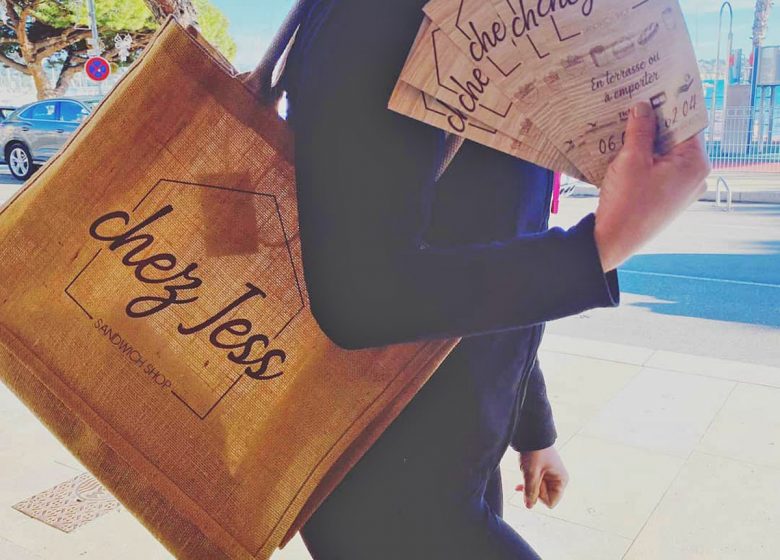 chez Jess
SANDWICH SHOP
che
che
ch
chez
En terrasse ou
à emporter
06
62 04